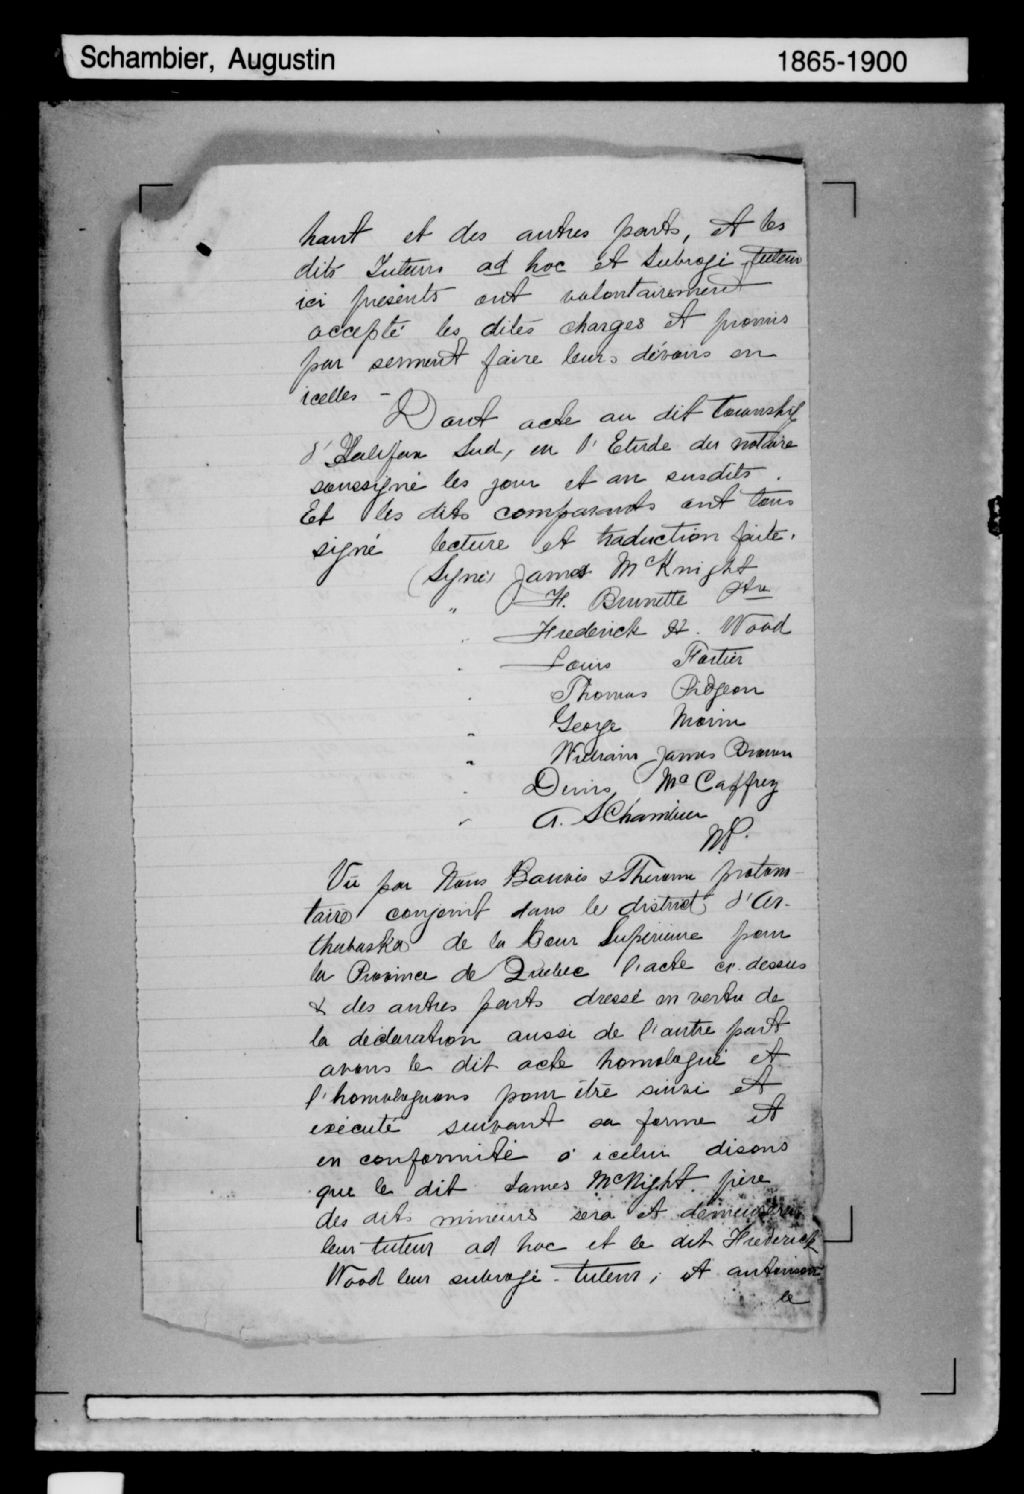 Schambier, Augustin 1865-1900
haut et des autres parts, et les
dits Tuteurs ad hoc et Subrogé tuteur
ici présents ont volontairement
accepté les dites charges et promis
par serment faire leurs dévoirs en
icelles -
Dont acte au dit Township
d'Halifax Sud, en l'Etude du notaire
soussigné les jour et an susdits.
Et les dits comparants ont tous
signé lecture et traduction faite.
(Signé) James McKnight
" H. Brunette Ptre
" Frederick H. Wood
" Louis Fortier
" Thomas Pidgeon
" George Morin
" William James Brown
" Denis McCaffrey
" A. SChambier
N.P.
Vu par Nous Barwis & Theroux protono-
taire conjoint dans le district d'Ar-
thabaska de la Cour Supérieure pour
la Province de Québec l'acte ci-dessus
& des autres parts dressé en vertu de
la déclaration aussi de l'autre part
avons le dit acte homologué et
l'homologuons pour être suivi et
exécuté suivant sa forme et
en conformité à icelui disons
que le dit James McNight père
des dits mineurs sera et demeurera
leur tuteur ad hoc et le dit Frederick
Wood leur subrogé-tuteur, et autorisons
le